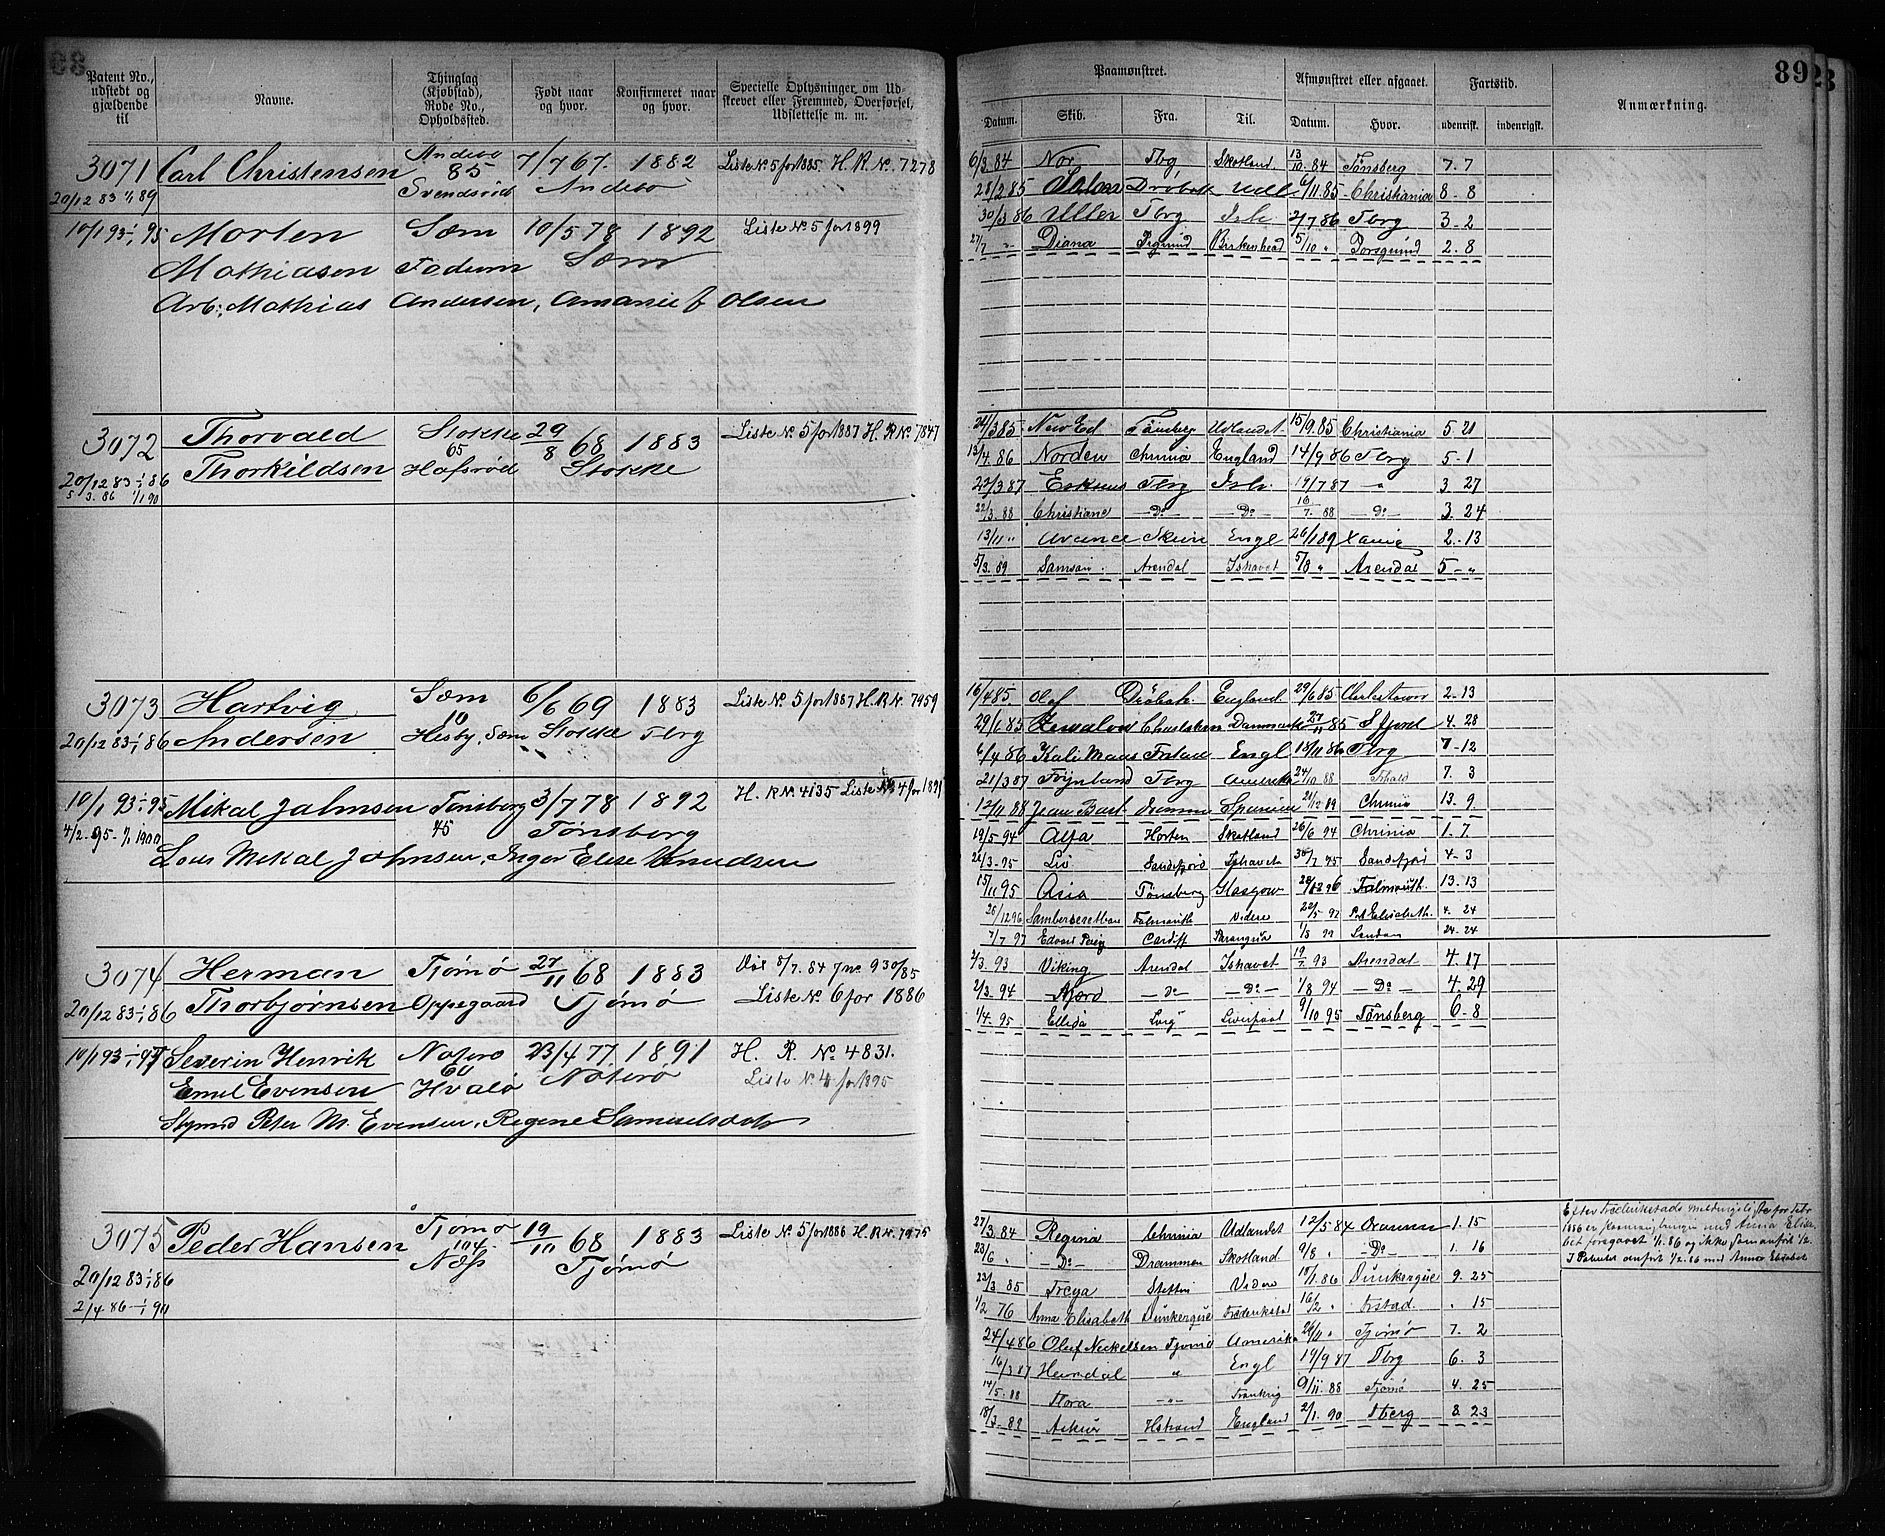 89
Patent No., udstedt og gjældende til
Navne.
Thinglag (Kjøbstad), Rode No., Opholdssted.
Født naar og hvor.
Konfirmeret naar og hvor.
Specielle Oplysninger om Udskrevet eller Fremmed, Overførsel, Udslettelse m. m.
Paamønstret.
Afmønstret eller afgaaet.
Fartstid.
Anmærkning.
Datum. Skib. Fra. Til. Datum. Hvor. udenrigk. indenrigsk.
3071 Carl Christensen Andebo 85 Svendsrød 7/7 67. Andebo 1882 Liste No. 5 for 1885. H. R. No. 7278
20/12 83 1/1 89
10/1 93 - 1/1 95 Morten Sæm 10/5 78 1892 Liste No. 5 for 1899
Mathiasen Fodum Sæm
Arb. Mathias Andersen, Amanie J. Olsen
6/3. 84 Nor Tbg Skotland 13/10. 84 Tønsberg 7. 7
28/2 85 Drøbak Udl 6/11. 85 Christiania 8. 8
30/3 86 Uller Tbrg Ish. 2/7 86 Tbrg 3-2
27/7 " Diana Prgrund Birkenhead 5/10 " Porsgrund 2. 8
3072 Thorvald Stokke 29/8 68 1883 Liste No. 5 for 1887 H. R No. 7847
Thorkildsen 65 Hafsrød Stokke
20/12 83 - 1/1 86
5/3. 86 1/1 90
24/3 85 New Ed. Tønsberg Udlandet 15/9. 85 Christiania 5. 21
13/4. 86 Norden Chrnia England 14/9 86 Tbrg 5-1
22/3 87 Tbrg Ish. 19/7 87 -"- 3. 27
22/3. 88 Christiane -Do- -Do- 16/7. 88 -Do- 3. 24
13/11 " Avance Skien Engl 26/1 89 Xania 2.-13
5/3. 89 Samson. Arendal Ishavet 5/8 " Arendal 5-"
3073 Hartvig Sæm 10 6/6 69 1883 Liste No. 5 for 1887 H. R No. 7959
20/12 83 - 1/1 86 Andersen Hesby, Sæm Stokke Tbrg
10/1 93 - 1/1 95 Mikal Johnsen Tønsberg 3/7 78 1892 H. R No. 4135 Liste No. 4 for 1899
4/2. 95 - 1/1 1900 45 Tønsberg
Lous Mikal Johnsen, Inger Elise Knudsen
16/4 85. Olaf Drøbak. England 29/6 85 Charlestown 2-13
29/6 85 Danmark 27/11 85 4. 28
6/4 86 Kali Maas Frstad Engl 18/11 86 Tbrg 7-12
21/3 87 Føynland Tbrg Amerika 24/10 88 Frhald 7. 3
12/11 88 Jean Bart Dramm Spanien 21/12 89 Chrnia 13. 9
19/5 94 Alfa Horten Skotland 26/6 94 Chrnia 1. 7
26/3. 95 Liv Sandefjord Ishavet 30/7 95 Sandefjord 4-3
15/11 95 Asia Tønsberg Glasgow 28/12 96 Falmouth 13. 13
28/12 96 Falmouth Videre 22/5 97 Pt Elisabeth. 4. 24
7/7 97 Cardiff Paranqua 1/8 99 London 24-24
3074 Herman Tjømø 27/11 68 1883 Døe 8/7. 84 Jno. 930/85
20/12 83 - 1/1 86 Thorbjørnsen Oppegaard Tjømø Liste No. 6 for 1886
10/1 93 - 1/1 95 Severin Henrik Nøterø 23/4 77 1891 H. R. No. 4831.
Emil Evensen 60 Hvalø Nøterø Liste No. 4 for 1895
Stymd Peter M. Evensen, Regine Samuelsdatt
2/3. 93 Viking Arendal Ishavet 19/7. 93 Arendal 4. 17
2/3. 94 Njord -Do- -Do- 1/8 94 -Do- 4. 29
1/4. 95 Ellida Lvig Liverpool 9/10 95 Tønsberg 6-8
3075 Peder Hansen Tjømø 104 Næss 19/10 68 Tjømø 1883 Liste No. 5 for 1886 H. R No. 7975
20/12 83 - 1/1 86
2/4. 86 - 1/1 90
27/3. 84 Regina Chrnia Udlandet 12/5 84 Drammen 1. 15
23/6 " -Do- Drammen Skotland 9/8 " -Do- 1. 16
23/3 85 Freya Stettin Videre 18/1. 86 Dunkerque 9. 25
1/2 76 Anna Elisabeth Dunkerque Frederikstad 16/2 " Frstad. " 15
24/4 86 Oluf Nickelsen Tjømø Amerika 26/11 " Tjømø 7. 2
16/3 87 Heimdal " Engl 19/9 87 Tbrg 6. 3
14/5. 88 Flora -"- Frankrig 9/11. 88 Tjømø 4. 25
18/3. 89 Askur Hstrand England 2/1. 90 Tberg 8. 23
Efter Frederikstads meldingsliste for Febr
1886 er med Anna Elisa-
bet foregaaet 1/1. 86 og ikke som anført 1/2.
anført 1/2. 86 med Anna Elisabet